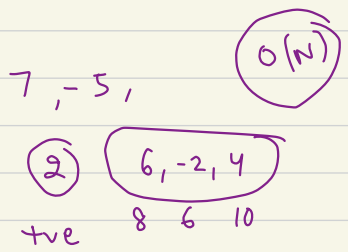 O(N)
7, -5,
2 6, -2, 4
+ve 8 6 10